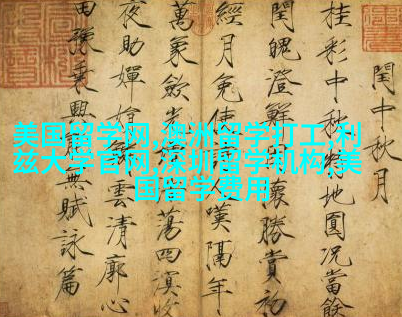 美国留学网,澳洲留学打工,利
兹大学官网,深圳留学机构,美
国留学费用
閏中秋月
桂彩中秋地圓況當餘
閏魄澄鮮懷勝賞初
經月免使人嘆隔年
萬象斂光蕩四溟收
夜助嬋娟雲清廓心
田豫乘興無賦詠篇